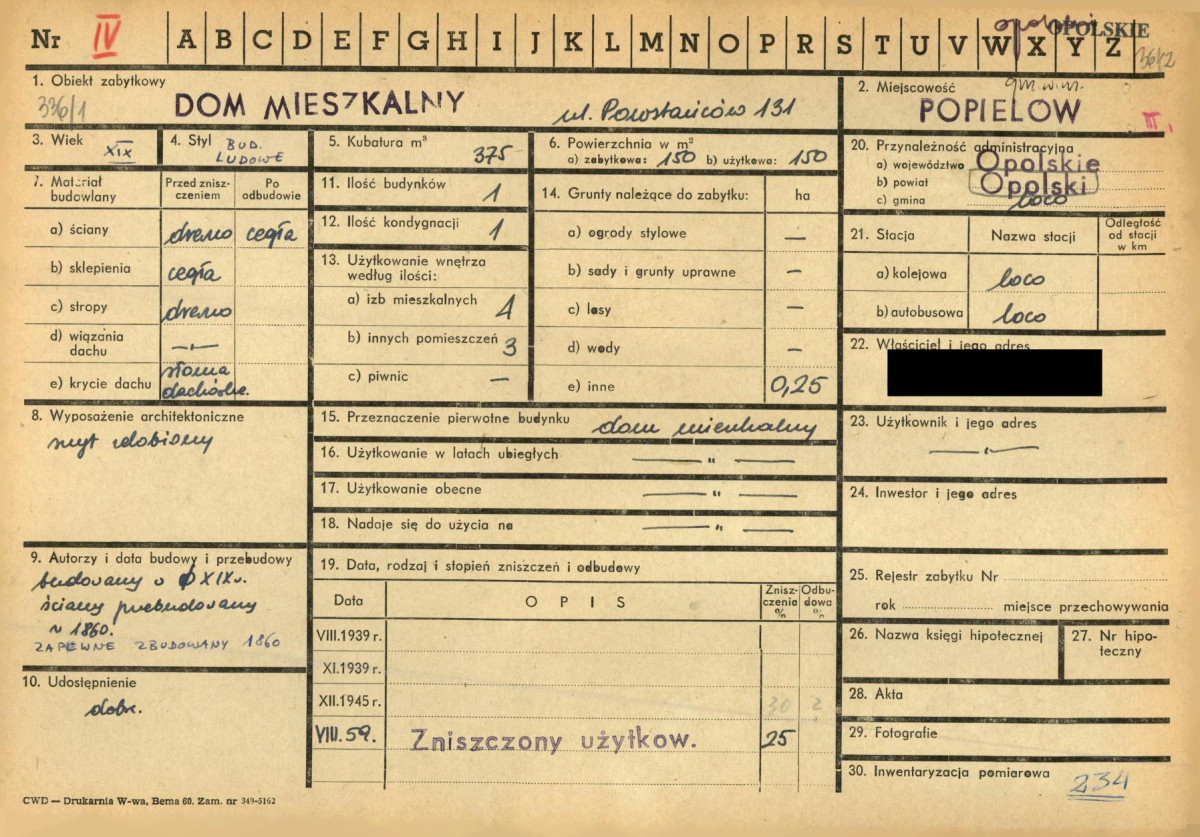 Nr IV A B C D E F G H I J K L M N O P R S T U V W X Y Z
opolskie OPOLSKIE
36/2
1. Obiekt zabytkowy
336/1 DOM MIESZKALNY ul. Powstańców 131
2. Miejscowość
POPIELOW
III
3. Wiek XIX
4. Styl BUD. LUDOWE
5. Kubatura m³ 375
6. Powierzchnia w m²
a) zabytkowa: 150 b) użytkowa: 150
7. Materiał budowlany
Przed zniszczeniem
Po odbudowie
a) ściany drewno cegła
b) sklepienia cegła
c) stropy drewno
d) wiązania dachu —„—
e) krycie dachu słoma dachówka.
8. Wyposażenie architektoniczne
szczyt zdobiony
9. Autorzy i data budowy i przebudowy
budowany w XIX w.
ściany przebudowany
w 1860.
ZAPEWNE ZBUDOWANY 1860
10. Udostępnienie
dobre.
11. Ilość budynków 1
12. Ilość kondygnacji 1
13. Użytkowanie wnętrza według ilości:
a) izb mieszkalnych 4
b) innych pomieszczeń 3
c) piwnic —
14. Grunty należące do zabytku: ha
a) ogrody stylowe —
b) sady i grunty uprawne —
c) lasy —
d) wody —
e) inne 0,25
15. Przeznaczenie pierwotne budynku dom mieszkalny
16. Użytkowanie w latach ubiegłych —„—
17. Użytkowanie obecne —„—
18. Nadaje się do użycia na —„—
19. Data, rodzaj i stopień zniszczeń i odbudowy
Data OPIS Zniszczenia % Odbudowa %
VIII.1939 r.
XI.1939 r.
XII.1945 r. 30 ?
VIII.59. Zniszczony użytkow. 25
20. Przynależność administracyjna
a) województwo Opolskie
b) powiat Opolski
c) gmina loco
21. Stacja Nazwa stacji Odległość od stacji w km
a) kolejowa loco
b) autobusowa loco
22. Właściciel i jego adres
23. Użytkownik i jego adres
—„—
24. Inwestor i jego adres
25. Rejestr zabytku Nr
rok miejsce przechowywania
26. Nazwa księgi hipotecznej
27. Nr hipoteczny
28. Akta
29. Fotografie
30. Inwentaryzacja pomiarowa 234
CWD — Drukarnia W-wa, Bema 60. Zam. nr 349-5162